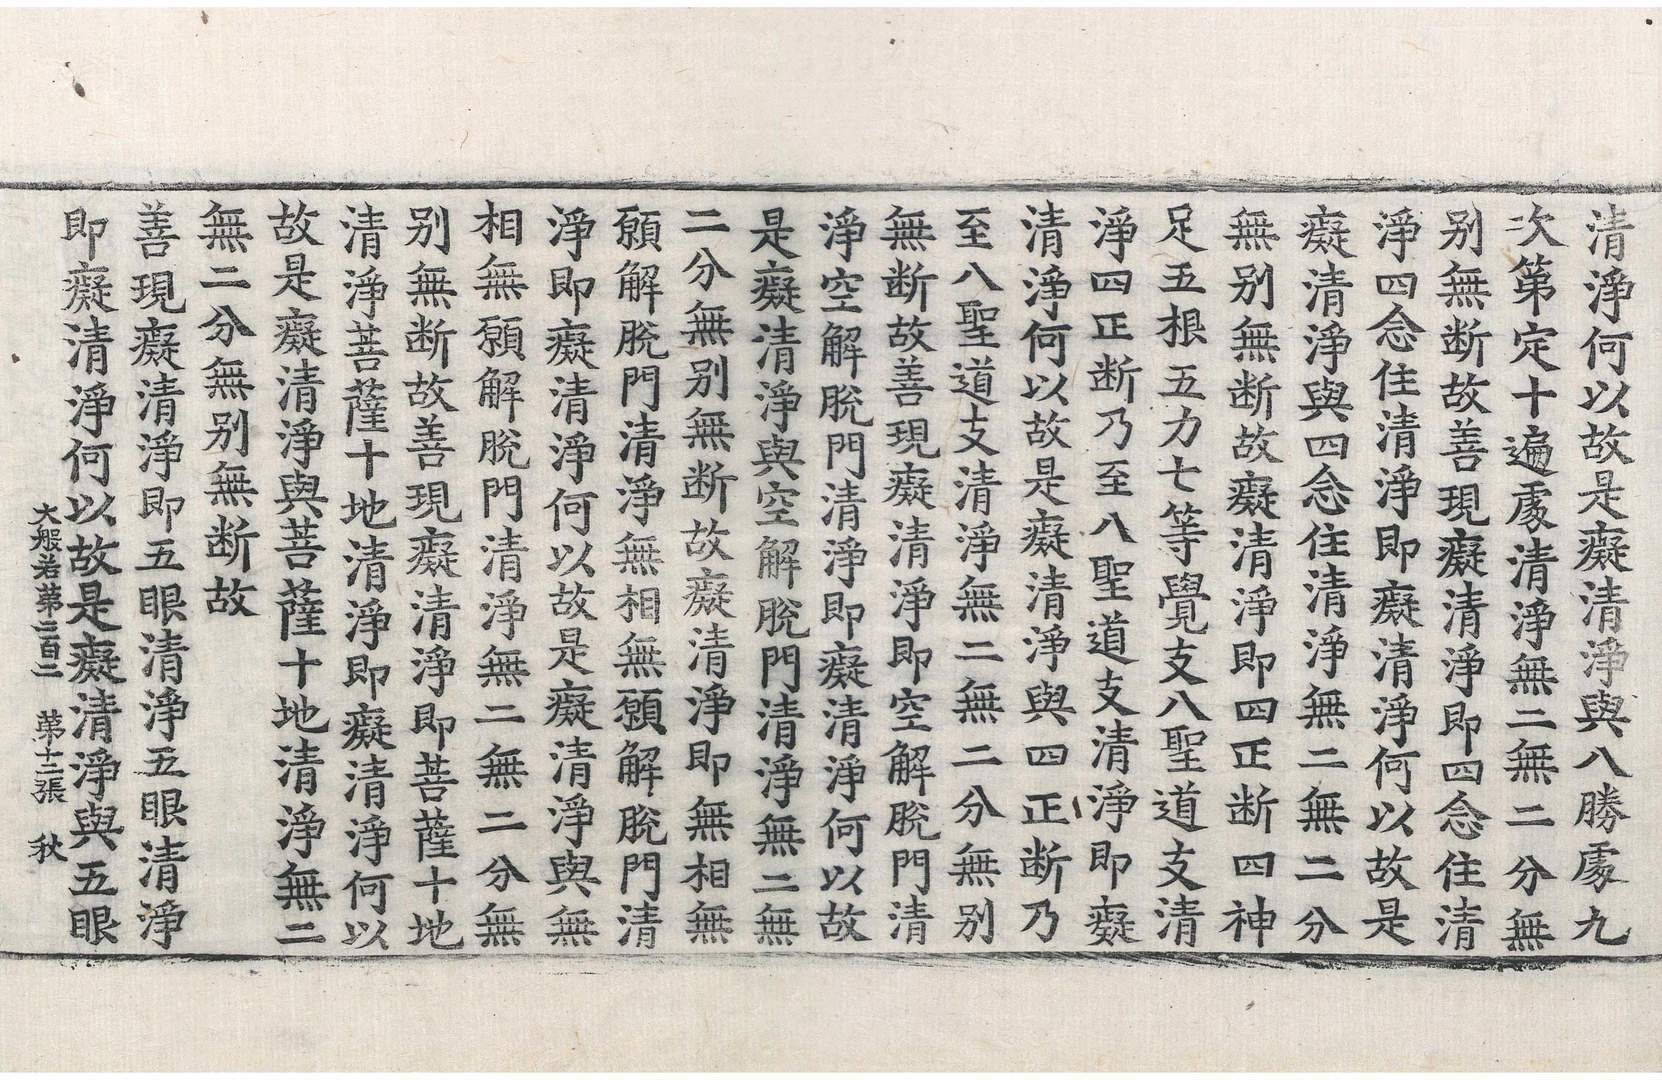 清淨何以故是癡清淨與八勝處九
次第定十遍處清淨無二無二分無
别無断故善現癡清淨即四念住清
淨四念住清淨即癡清淨何以故是
癡清淨與四念住清淨無二無二分
無别無断故癡清淨即四正断四神
足五根五力七等覺支八聖道支清
淨四正断乃至八聖道支清淨即癡
清淨何以故是癡清淨與四正断乃
至八聖道支清淨無二無二分無别
無断故善現癡清淨即空解脫門清
淨空解脫門清淨即癡清淨何以故
是癡清淨與空解脫門清淨無二無
二分無别無断故癡清淨即無相無
願解脫門清淨無相無願解脫門清
淨即癡清淨何以故是癡清淨與無
相無願解脫門清淨無二無二分無
别無断故善現癡清淨即菩薩十地
清淨菩薩十地清淨即癡清淨何以
故是癡清淨與菩薩十地清淨無二
無二分無别無断故
善現癡清淨即五眼清淨五眼清淨
即癡清淨何以故是癡清淨與五眼
大般若第二百二 第十二張 秋